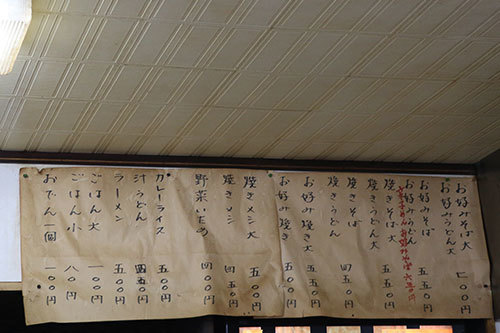 お好みそば大
お好みうどん大 七〇〇円
お好みそば
お好みうどん 五五〇円
焼きそば大
焼きうどん大 五五〇円
焼きそば
焼きうどん 四五〇円
お好み焼き大 五五〇円
お好み焼き 五〇〇円
焼きメシ大 五五〇円
焼きメシ 四五〇円
野菜いため 四〇〇円
カレーライス 五〇〇円
汁うどん 四五〇円
ラーメン 五五〇円
ごはん大 一〇〇円
ごはん小 八〇円
おでん一個 一〇〇円